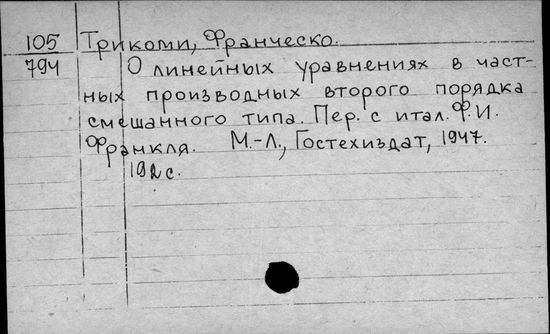 105 Трикоми, Франческо.
794 О линейных уравнениях в част-
ных производных второго порядка
смешанного типа. Пер. с итал. Ф.И.
Франкля. М.-Л., Гостехиздат, 1947.
192 с.